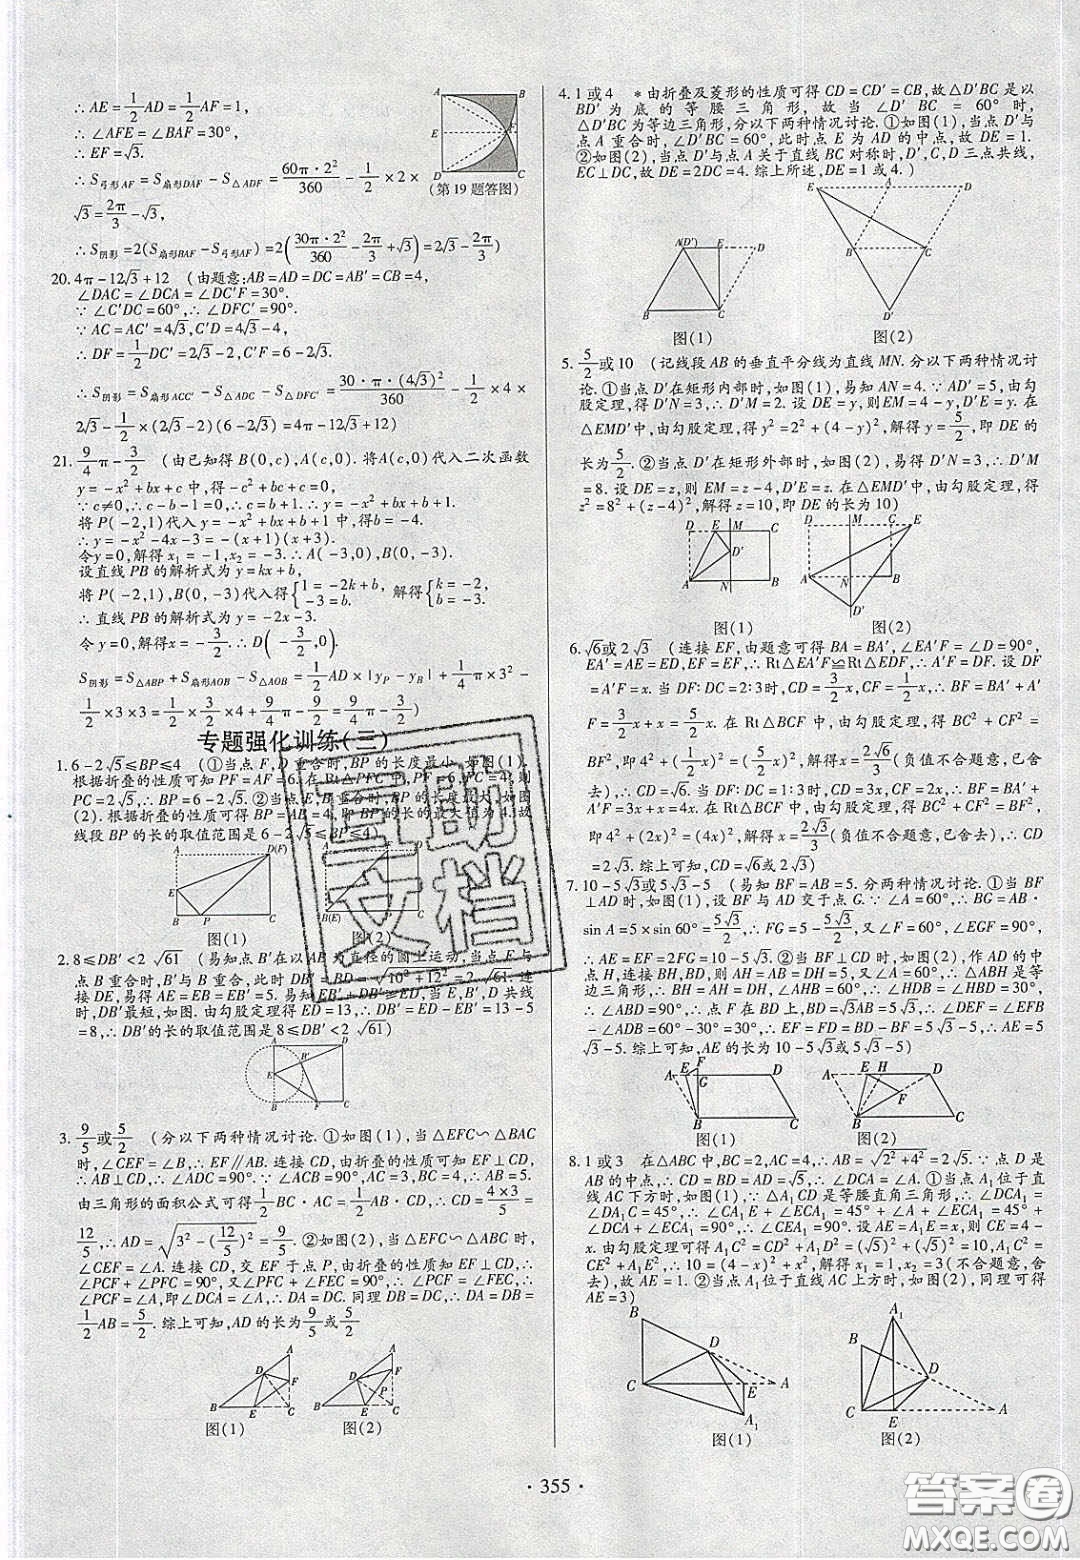 ∴AE=1/2AD=1/2AF=1,
∴∠AFE=∠BAF=30°,
∴EF=√3.
∴S弓形AF=S扇形DAF-S△ADF=60π·2²/360-1/2×2×
√3=2π/3-√3,
∴S阴影=2(S扇形BAF-S弓形AF)=2(30π·2²/360-2π/3+√3)=2√3-2π/3)
(第19题答图)
20. 4π-12√3+12 (由题意:AB=AD=DC=AB'=CB=4,
∠DAC=∠DCA=∠DC'F=30°.
∵∠C'DC=60°,∴∠DFC'=90°.
∵AC=AC'=4√3,C'D=4√3-4,
∴DF=1/2DC'=2√3-2,C'F=6-2√3.
∴S阴影=S扇形ACC'-S△ADC-S△DFC'=30·π·(4√3)²/360-1/2×4×
2√3-1/2×(2√3-2)(6-2√3)=4π-12√3+12)
21. 9/4π-3/2 (由已知得B(0,c),A(c,0).将A(c,0)代入二次函数
y=-x²+bx+c中,得-c²+bc+c=0.
∵c≠0,∴c-b-1=0,∴c=b+1.∴y=-x²+bx+b+1.
将P(-2,1)代入y=-x²+bx+b+1中,得b=-4.
∴y=-x²-4x-3=-(x+1)(x+3).
令y=0,解得x₁=-1,x₂=-3.∴A(-3,0),B(0,-3).
设直线PB的解析式为y=kx+b,
将P(-2,1),B(0,-3)代入得{1=-2k+b, -3=b. 解得{k=-2, b=-3.
∴直线PB的解析式为y=-2x-3.
令y=0,解得x=-3/2.∴D(-3/2,0).
S阴影=S△ABP+S扇形AOB-S△AOB=1/2AD×|yP-yB|+1/4π×3²-
1/2×3×3=1/2×(3-3/2)×4+9/4π-9/2=9/4π-3/2)
专题强化训练(三)
1. 6-2√5≤BP≤4 (①当点F,D重合时,BP的长度最小,如图(1).
根据折叠的性质可知PF=AF=6.在Rt△PFC中,PF=6,FC=4,则
PC=2√5,∴BP=6-2√5.②当点E,B重合时,BP的长度最大,如图
(2).根据折叠的性质可得BP=AB=4,即BP的长的最大值为4.故
线段BP的长的取值范围是6-2√5≤BP≤4)
图(1) 图(2)
2. 8≤DB'<2√61 (易知点B'在以AB为直径的圆上运动,当点E与
点B重合时,B'与B重合,此时DB'=BD=√10²+12²=2√61.连
接DE,易得AE=BE=5.易知EB'+DB'≥ED,当E,B',D共线
时,DB'最短,如图.由勾股定理得ED=13,∴DB'=ED-EB'=13-5
=8,∴DB'的长的取值范围是8≤DB'<2√61)
3. 9/5或5/2 (分以下两种情况讨论.①如图(1),当△EFC∽△BAC
时,∠CEF=∠B,∴EF∥AB.连接CD,由折叠的性质可知EF⊥CD,
∴AB⊥CD,∴∠ADC=90°.∵∠ACB=90°,AC=3,BC=4,∴AB=5.
由三角形的面积公式可得1/2BC·AC=1/2AB·CD,∴CD=4×3/5=
12/5,∴AD=√3²-(12/5)²=9/5.②如图(2),当△EFC∽△ABC时,
∠CEF=∠A.连接CD,交EF于点P,由折叠的性质知EF⊥CD,
∴∠PCF+∠PFC=90°,又∠PFC+∠FEC=90°,∴∠PCF=∠FEC,
∴∠PCF=∠A,即∠DCA=∠A,∴DA=DC.同理DB=DC,∴DA=DB=
1/2AB=5/2.综上可知,AD的长为9/5或5/2)
图(1) 图(2)
4. 1或4 *由折叠及菱形的性质可得CD=CD'=CB,故△D'BC是以
BD'为底的等腰三角形,故当∠D'BC=60°时,
△D'BC为等边三角形,分以下两种情况讨论.①如图(1),当点D'与
点A重合时,∠D'BC=60°,此时点E为AD的中点,故DE=1.
②如图(2),当点D'与点A关于直线BC对称时,D',C,D三点共线,
EC⊥DC,故DE=2DC=4.综上所述,DE=1或4.)
图(1) 图(2)
5. 5/2或10 (记线段AB的垂直平分线为直线MN.分以下两种情况讨
论.①当点D'在矩形内部时,如图(1),易知AN=4.∵AD'=5,由勾
股定理,得D'N=3,∴D'M=2.设DE=y,则EM=4-y,D'E=y.在
△EMD'中,由勾股定理,得y²=2²+(4-y)²,解得y=5/2,即DE的
长为5/2.②当点D'在矩形外部时,如图(2),易得D'N=3,∴D'M
=8.设DE=z,则EM=z-4,D'E=z.在△EMD'中,由勾股定理,得
z²=8²+(z-4)²,解得z=10,即DE的长为10)
图(1) 图(2)
6. √6或2√3 (连接EF,由题意可得BA=BA',∠EA'F=∠D=90°,
EA'=AE=ED,EF=EF,∴Rt△EA'F≌Rt△EDF,∴A'F=DF.设DF
=A'F=x.当DF∶DC=2∶3时,CD=3/2x,CF=1/2x,∴BF=BA'+A'
F=3/2x+x=5/2x.在Rt△BCF中,由勾股定理,得BC²+CF²=
BF²,即4²+(1/2x)²=(5/2x)²,解得x=2√6/3(负值不合题意,已舍
去),∴CD=√6.当DF∶DC=1∶3时,CD=3x,CF=2x,∴BF=BA'+
A'F=3x+x=4x.在Rt△BCF中,由勾股定理,得BC²+CF²=BF²,
即4²+(2x)²=(4x)²,解得x=2√3/3(负值不合题意,已舍去),∴CD
=2√3.综上可知,CD=√6或2√3)
7. 10-5√3或5√3-5 (易知BF=AB=5.分两种情况讨论.①当BF⊥
AD时,如图(1),设BF与AD交于点G.∵∠A=60°,∴BG=AB·
sin A=5×sin60°=5√3/2,∴FG=5-5√3/2.易得∠F=∠A=60°,
∴AE=EF=2FG=10-5√3.②当BF⊥BD时,如图(2),作AD的中
点H,连接BH,则BH=AH=DH=5,∴AB=BH=AH,∴△ABH是等
边三角形,∴BH=AH=DH=5,∠AHB=60°,∴∠HDB=∠HBD=30°,
∴∠ABD=90°,∴BD=√3AB=5√3,∴∠DEF=∠EFB-
∠ADB=60°-30°=30°=∠ADB,∴EF=FD=BD-BF=5√3-5,∴AE=5
√3-5.综上可知,AE的长为10-5√3或5√3-5)
图(1) 图(2)
8. 1或3 在△ABC中,BC=2,AC=4,∴AB=√2²+4²=2√5.∵点D是
AB的中点,∴CD=BD=AD=√5,∴∠DCA=∠A.①当点A₁位于直
线AC下方时,如图(1),∵△A₁CD是等腰直角三角形,∴∠DCA₁=
∠DA₁C=45°,∴∠CA₁E+∠ECA₁=45°+∠A+∠ECA₁=45°+
∠DCA+∠ECA₁=90°,∴∠CEA₁=90°.设AE=A₁E=x,则CE=4-
x.由勾股定理可知A₁C²=CD²+A₁D²=(√5)²+(√5)²=10=
CE²+A₁E²,∴10=(4-x)²+x²,解得x₁=1,x₂=3(不合题意,舍
去),故AE=1.②当点A₁位于直线AC上方时,如图(2),同理可得
AE=3)
图(1) 图(2)
· 355 ·
答案卷
MXQE.COM